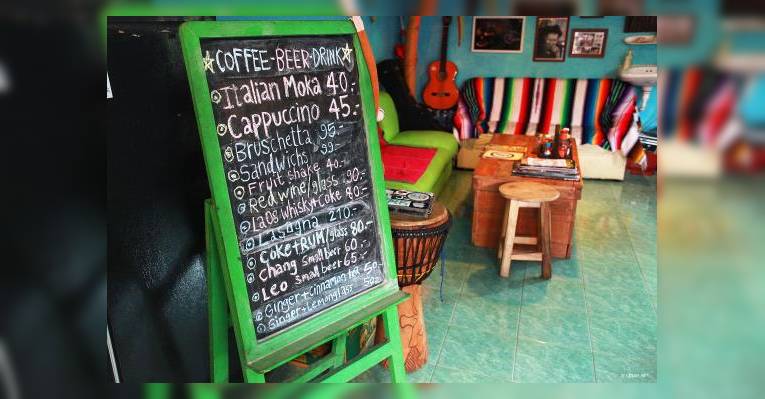 COFFEE-BEER-DRINK
Italian Moka 40.-
Cappuccino 45.-
Bruschetta 95.-
Sandwichs 99.-
Fruit shake 40.-
Red wine/glass 90.-
LaOS Whisky+Coke 80.-
Lasagna 210.-
Coke+RUM/glass 80.-
Chang Small beer 60.-
Leo Small beer 65.-
Ginger+Cinnamon tea 50.-
Ginger+Lemonglass 50.-